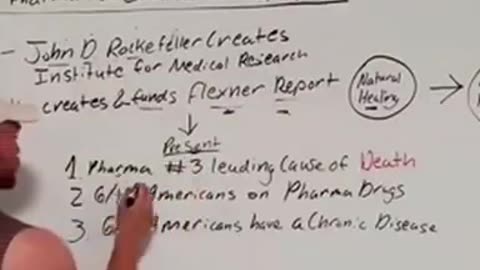 - John D Rockefeller Creates
Institute for Medical Research
creates & funds Flexner Report
Natural
Healing
Present
1. Pharma #3 leading Cause of Death
2 6/ Americans on Pharma Drugs
3 Americans have a Chronic Disease